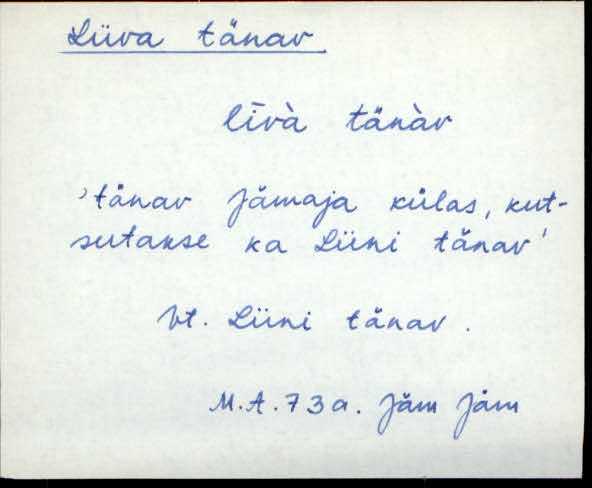 Liiva tänav
līvà tänàv
'tänav Jämaja külas, kut-
sutakse ka Liini tänav'
Vt. Liini tänav.
M.A. 73 a. Jäm Jäm